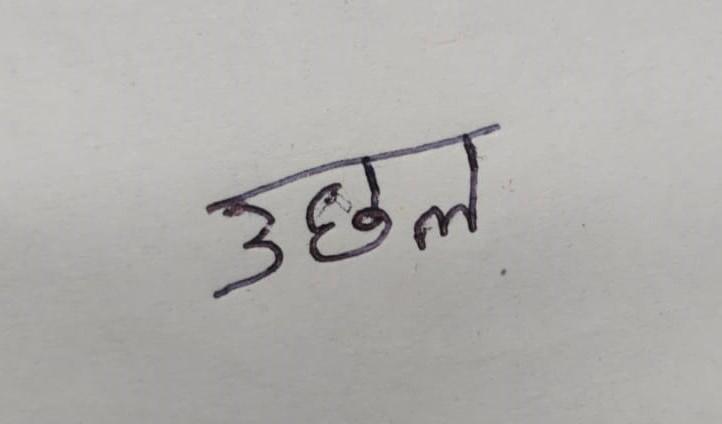 उछल